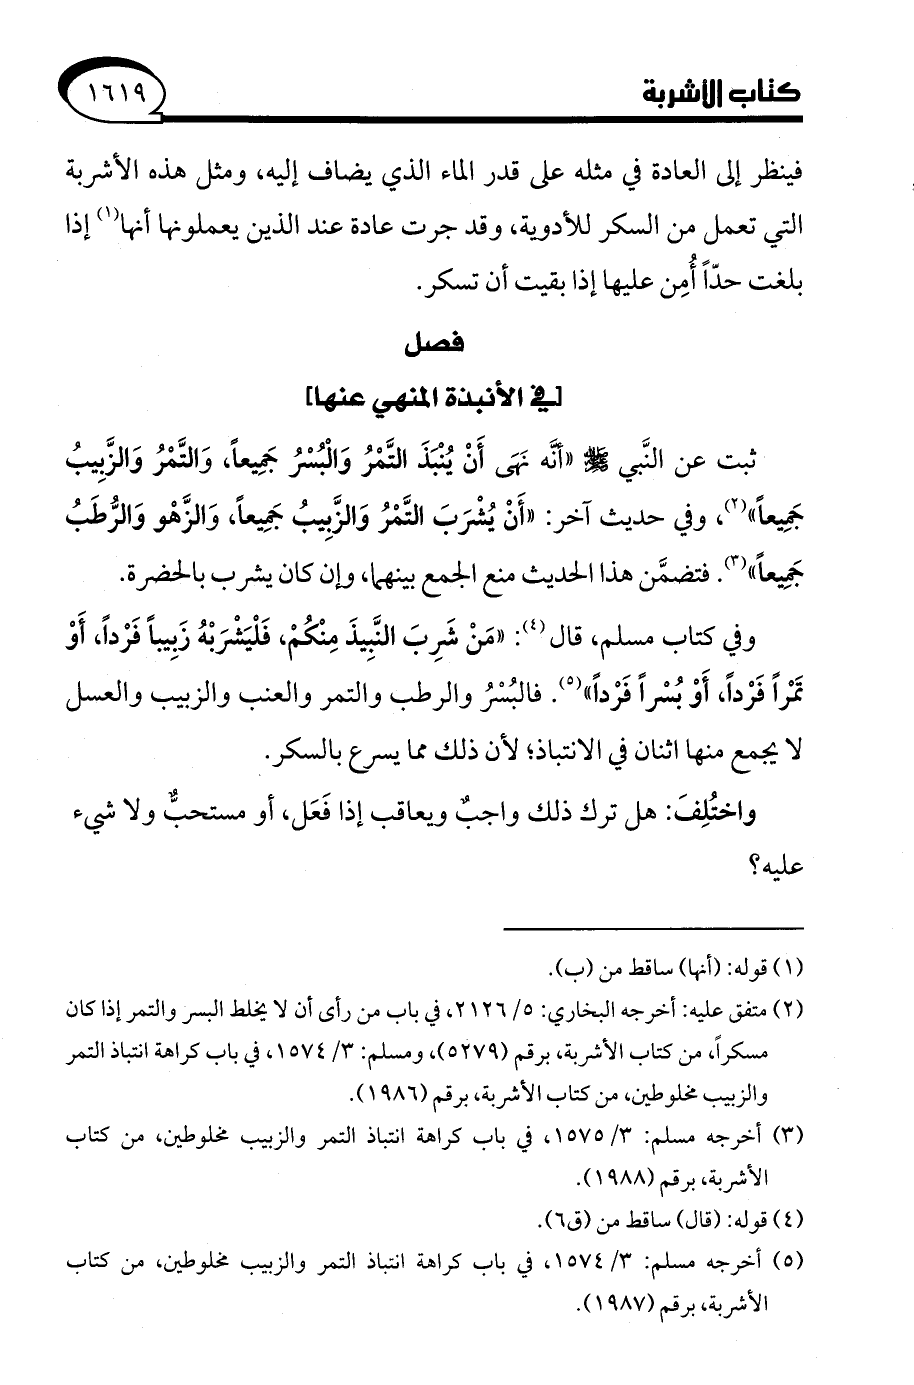 كتاب الأشربة
١٦١٩
فينظر إلى العادة في مثله على قدر الماء الذي يضاف إليه، ومثل هذه الأشربة
التي تعمل من السكر للأدوية، وقد جرت عادة عند الذين يعملونها أنها(١) إذا
بلغت حدّاً أُمِن عليها إذا بقيت أن تسكر.
فصل
[في الأنبذة المنهي عنها]
ثبت عن النَّبي ﷺ «أنَّه نَهَى أَنْ يُنْبَذَ التَّمْرُ وَالْبُسْرُ جَمِيعاً، وَالتَّمْرُ وَالزَّبِيبُ
جَمِيعاً»(٢)، وفي حديث آخر: «أَنْ يُشْرَبَ التَّمْرُ وَالزَّبِيبُ جَمِيعاً، وَالزَّهْو وَالرُّطَبُ
جَمِيعاً»(٣). فتضمَّن هذا الحديث منع الجمع بينهما، وإن كان يشرب بالحضرة.
وفي كتاب مسلم، قال(٤): «مَنْ شَرِبَ النَّبِيذَ مِنْكُمْ، فَلْيَشْرَبْهُ زَبِيباً فَرْداً، أَوْ
تَمْراً فَرْداً، أَوْ بُسْراً فَرْداً»(٥). فالبُسْرُ والرطب والتمر والعنب والزبيب والعسل
لا يجمع منها اثنان في الانتباذ؛ لأن ذلك مما يسرع بالسكر.
واختُلِفَ: هل ترك ذلك واجبٌ ويعاقب إذا فَعَل، أو مستحبٌّ ولا شيء
عليه؟
(١) قوله: (أنها) ساقط من (ب).
(٢) متفق عليه: أخرجه البخاري: ٥/ ٢١٢٦، في باب من رأى أن لا يخلط البسر والتمر إذا كان
مسكراً، من كتاب الأشربة، برقم (٥٢٧٩)، ومسلم: ٣/ ١٥٧٤، في باب كراهة انتباذ التمر
والزبيب مخلوطين، من كتاب الأشربة، برقم (١٩٨٦).
(٣) أخرجه مسلم: ٣/ ١٥٧٥، في باب كراهة انتباذ التمر والزبيب مخلوطين، من كتاب
الأشربة، برقم (١٩٨٨).
(٤) قوله: (قال) ساقط من (ق٦).
(٥) أخرجه مسلم: ٣/ ١٥٧٤، في باب كراهة انتباذ التمر والزبيب مخلوطين، من كتاب
الأشربة، برقم (١٩٨٧).